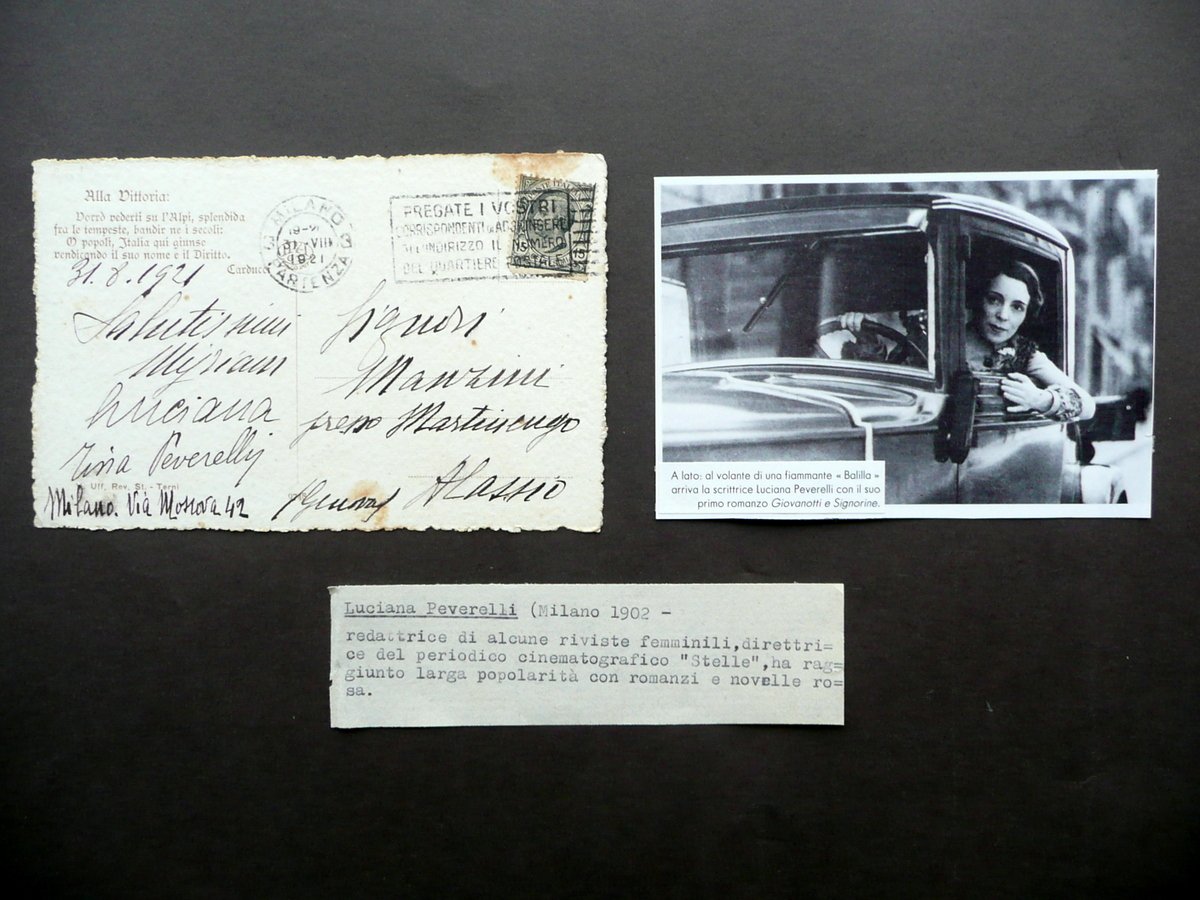 Alla Vittoria:
Vorrò vederti su l'Alpi, splendida
fra le tempeste, bandir ne i secoli:
O popoli, Italia qui giunse
vendicando il suo nome e il Diritto.
Carducci
31.8.1921
Salutissimi
Myriam
Luciana
Tina Peverelli
Uff. Rev. St. - Terni
Milano. Via Moscova 42
MILANO
19-
31 VIII
1921
PARTENZA
PREGATE I VOSTRI
CORRISPONDENTI ADAGGIUNGERE
ALL'INDIRIZZO IL NUMERO
DEL QUARTIERE POSTALE
Signori
Manzini
presso Martinengo
Alassio
(Genova)
A lato: al volante di una fiammante « Balilla »
arriva la scrittrice Luciana Peverelli con il suo
primo romanzo Giovanotti e Signorine.
Luciana Peverelli (Milano 1902 -
redattrice di alcune riviste femminili,direttri=
ce del periodico cinematografico "Stelle",ha rag=
giunto larga popolarità con romanzi e novelle ro=
sa.